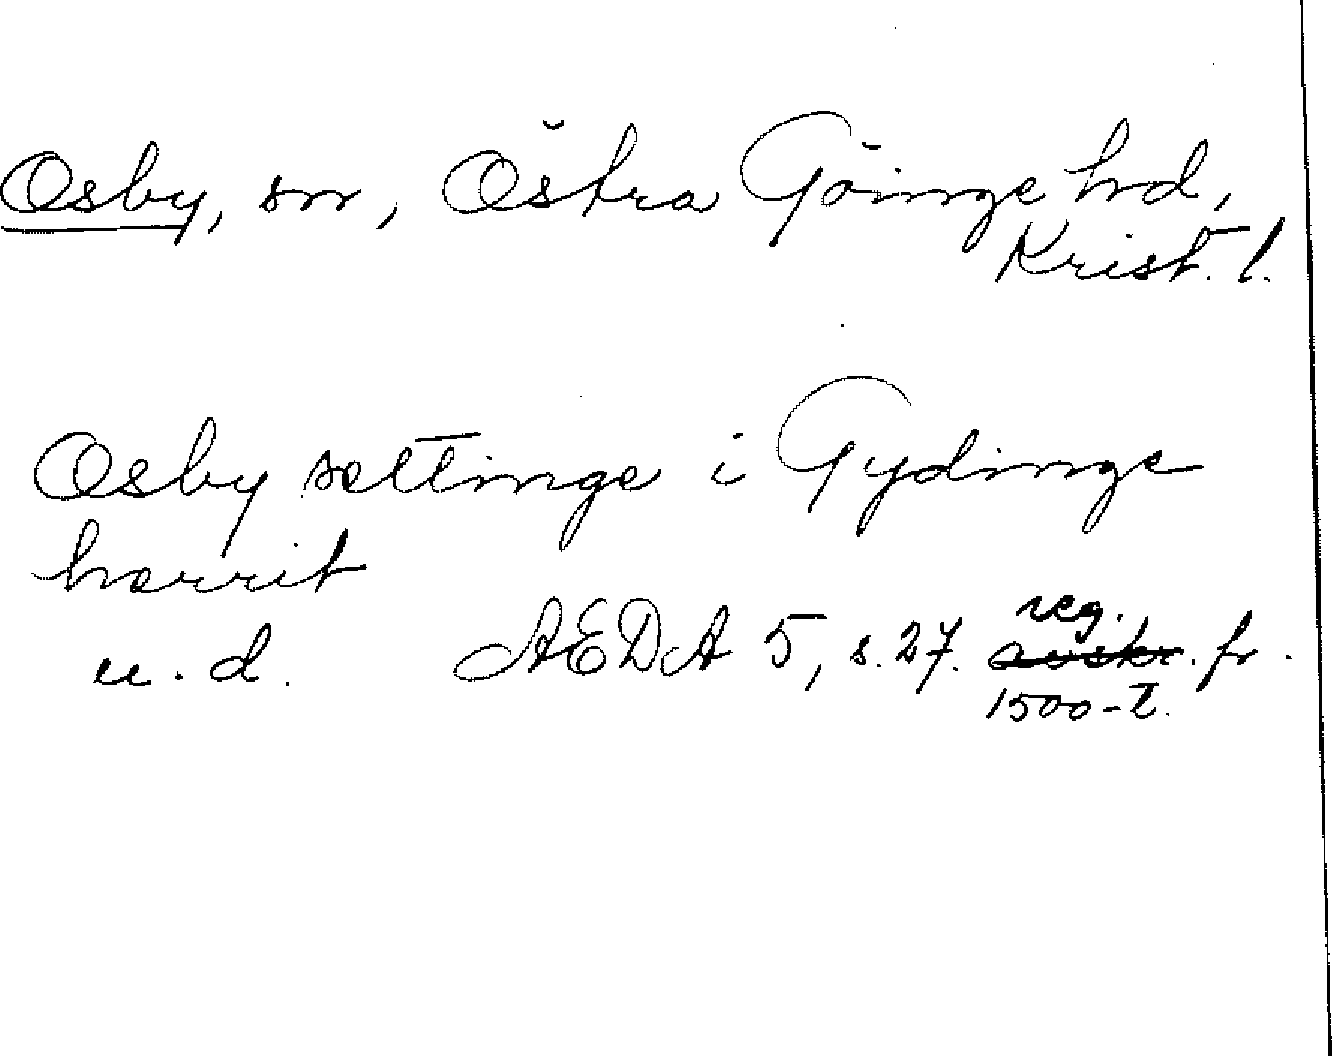 Osby, sn, Östra Göinge hd,
Krist. l.
Osby settinge i Gydinge
herrit
u. d. AEDA 5, s. 27. reg. fr.
1500-t.